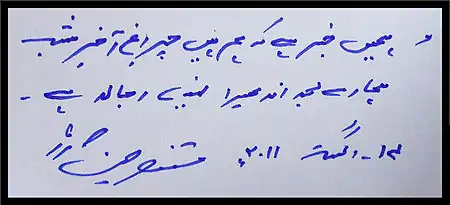 ہمیں خبر ہے کہ ہم ہیں چراغ آخر شب
ہمارے بعد اندھیرا نہیں اجالا ہے ۔
۱۴ ۔ اگست ۲۰۱۱ء مستنصر حسین تارڑ